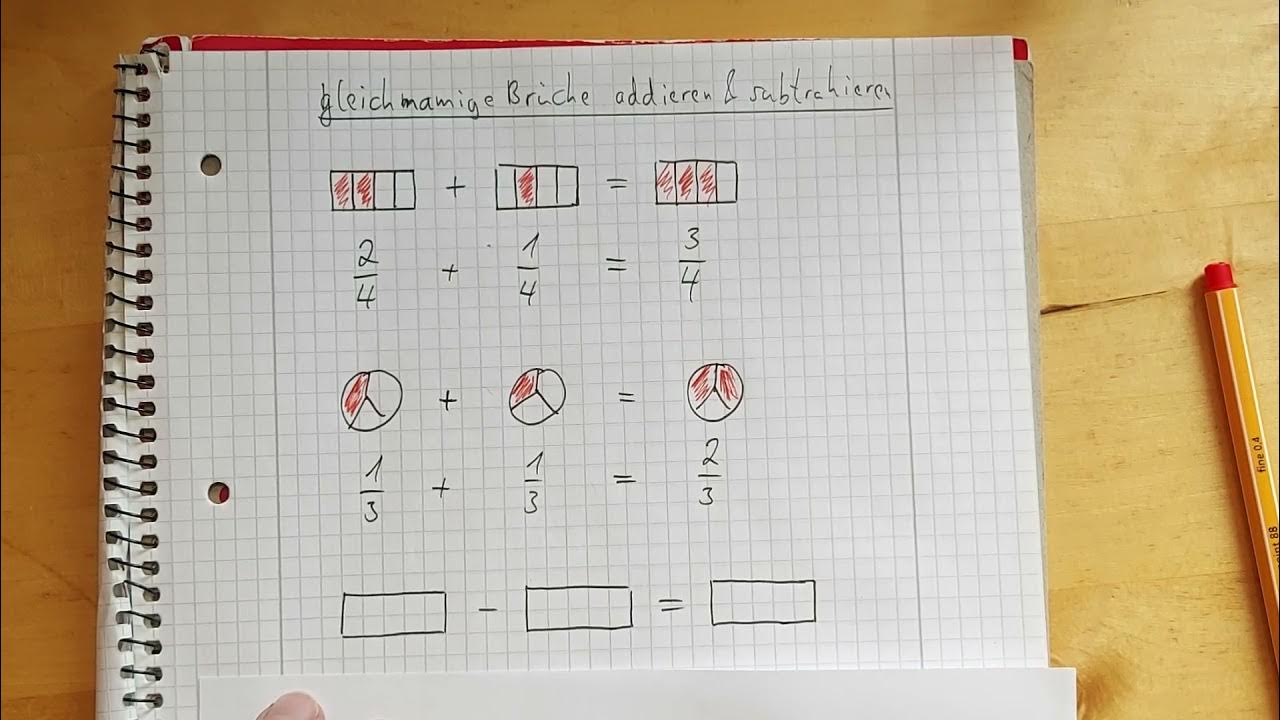 gleichnamige Brüche addieren & subtrahieren
+ =
2/4 + 1/4 = 3/4
+ =
1/3 + 1/3 = 2/3
- =
fine 0,4
point 88